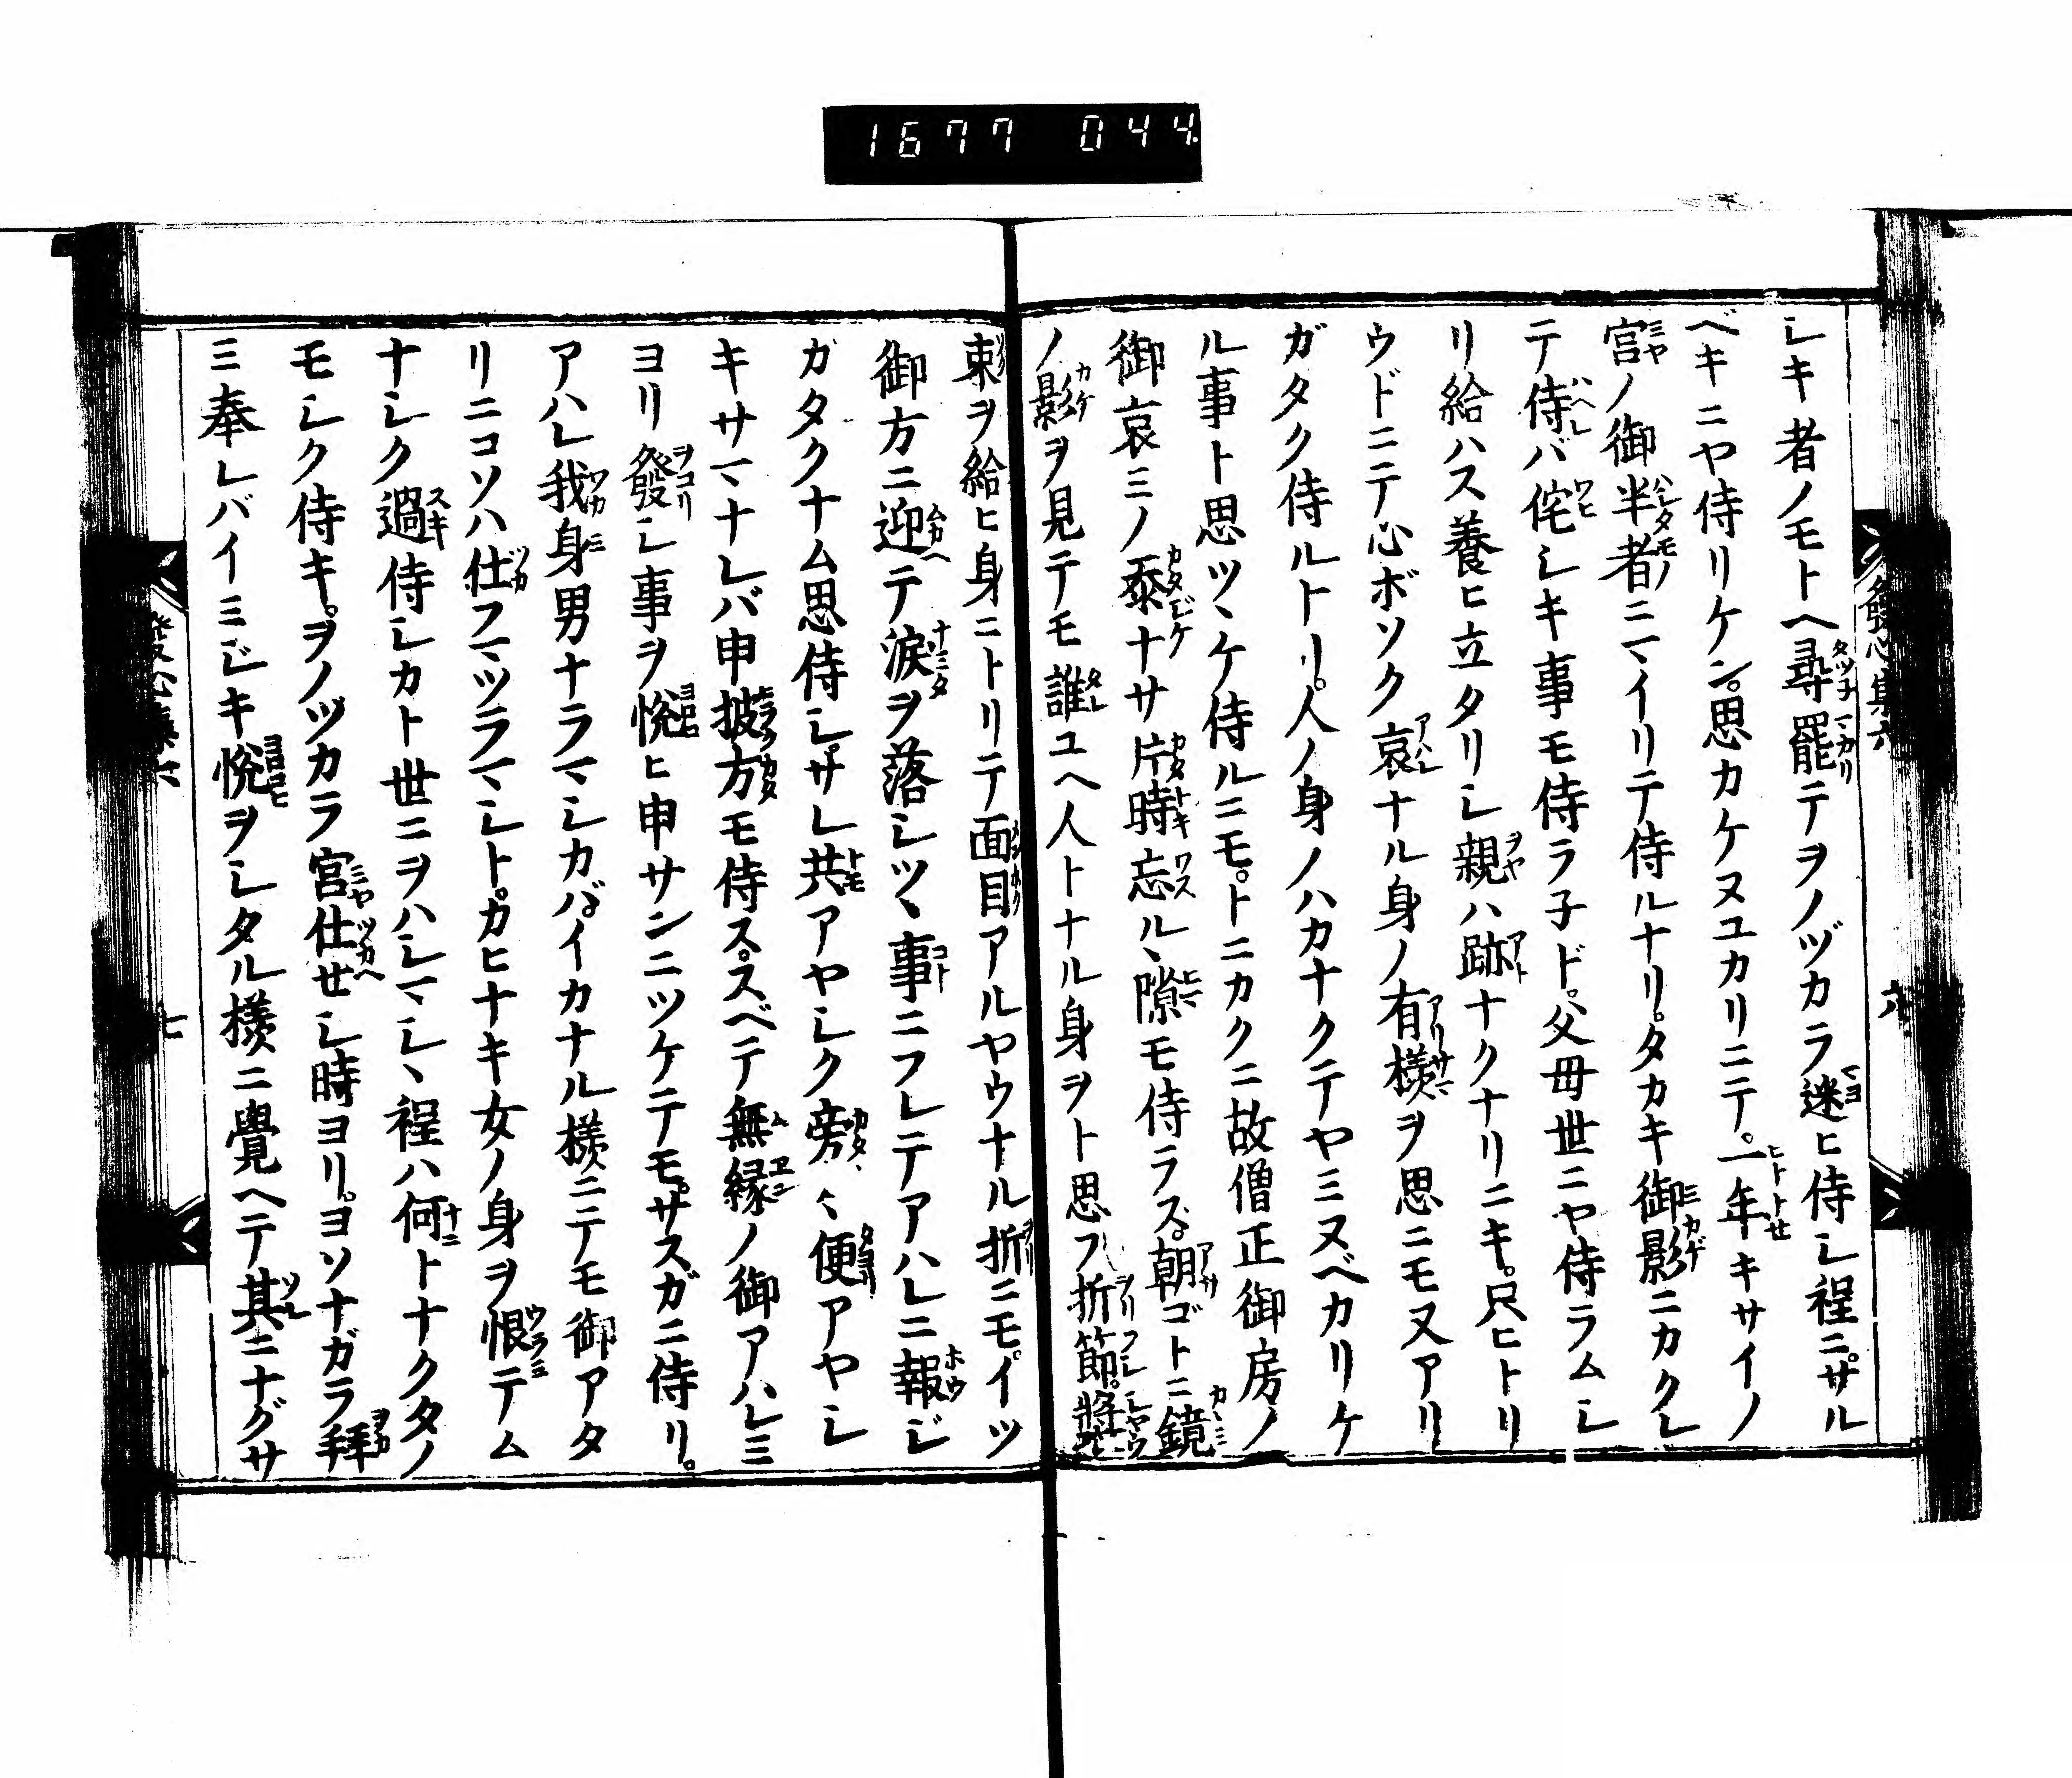 1677 044
發心集六
六
シキ者ノモトヘ尋罷テヲノヅカラ迷ヒ侍シ程ニ。サル
ベキニヤ侍リケン。思カケヌユカリニテ。一年キサイノ
宮ノ御半者ニマイリテ侍ルナリ。タカキ御影ニカクレ
テ侍バ侘シキ事モ侍ラ子ド。父母世ニヤ侍ラムシ
リ給ハス養ヒ立タリシ親ハ跡ナクナリニキ。只ヒトリ
ウドニテ心ボソク哀ナル身ノ有様ヲ思ニモ又アリ
ガタク侍ルトリ。人ノ身ノハカナクテヤミヌベカリケ
ル事ト思ツヽケ侍ルニモ。トニカクニ故僧正御房ノ
御哀ミノ忝ナサ片時忘ルヽ隙モ侍ラズ。朝ゴトニ鏡
ノ影ヲ見テモ誰ユヘ人トナル身ヲト思フ折節。將
束ヲ給ヒ身ニトリテ面目アルヤウナル折ニモ。イツ
御方ニ迎テ涙ヲ落シツヽ事ニフレテアハレニ報ジ
ガタクナム思侍シ。サレ共アヤシク旁〻便アヤシ
キサマナレバ申披方モ侍ス。スベテ無縁ノ御アハレミ
ヨリ發シ事ヲ悦ヒ申サンニツケテモ。サスガニ侍リ。
アハレ我身男ナラマシカバ。イカナル様ニテモ御アタ
リニコソハ仕フマツラマシト。カヒナキ女ノ身ヲ恨テム
ナシク過侍シカト世ニヲハシマシヽ程ハ何トナクタノ
モシク侍キ。ヲノヅカラ宮仕せシ時ヨリ。ヨソナガラ拜
ミ奉レバイミジキ悦ヲシタル様ニ覺ヘテ其ニナグサ
七